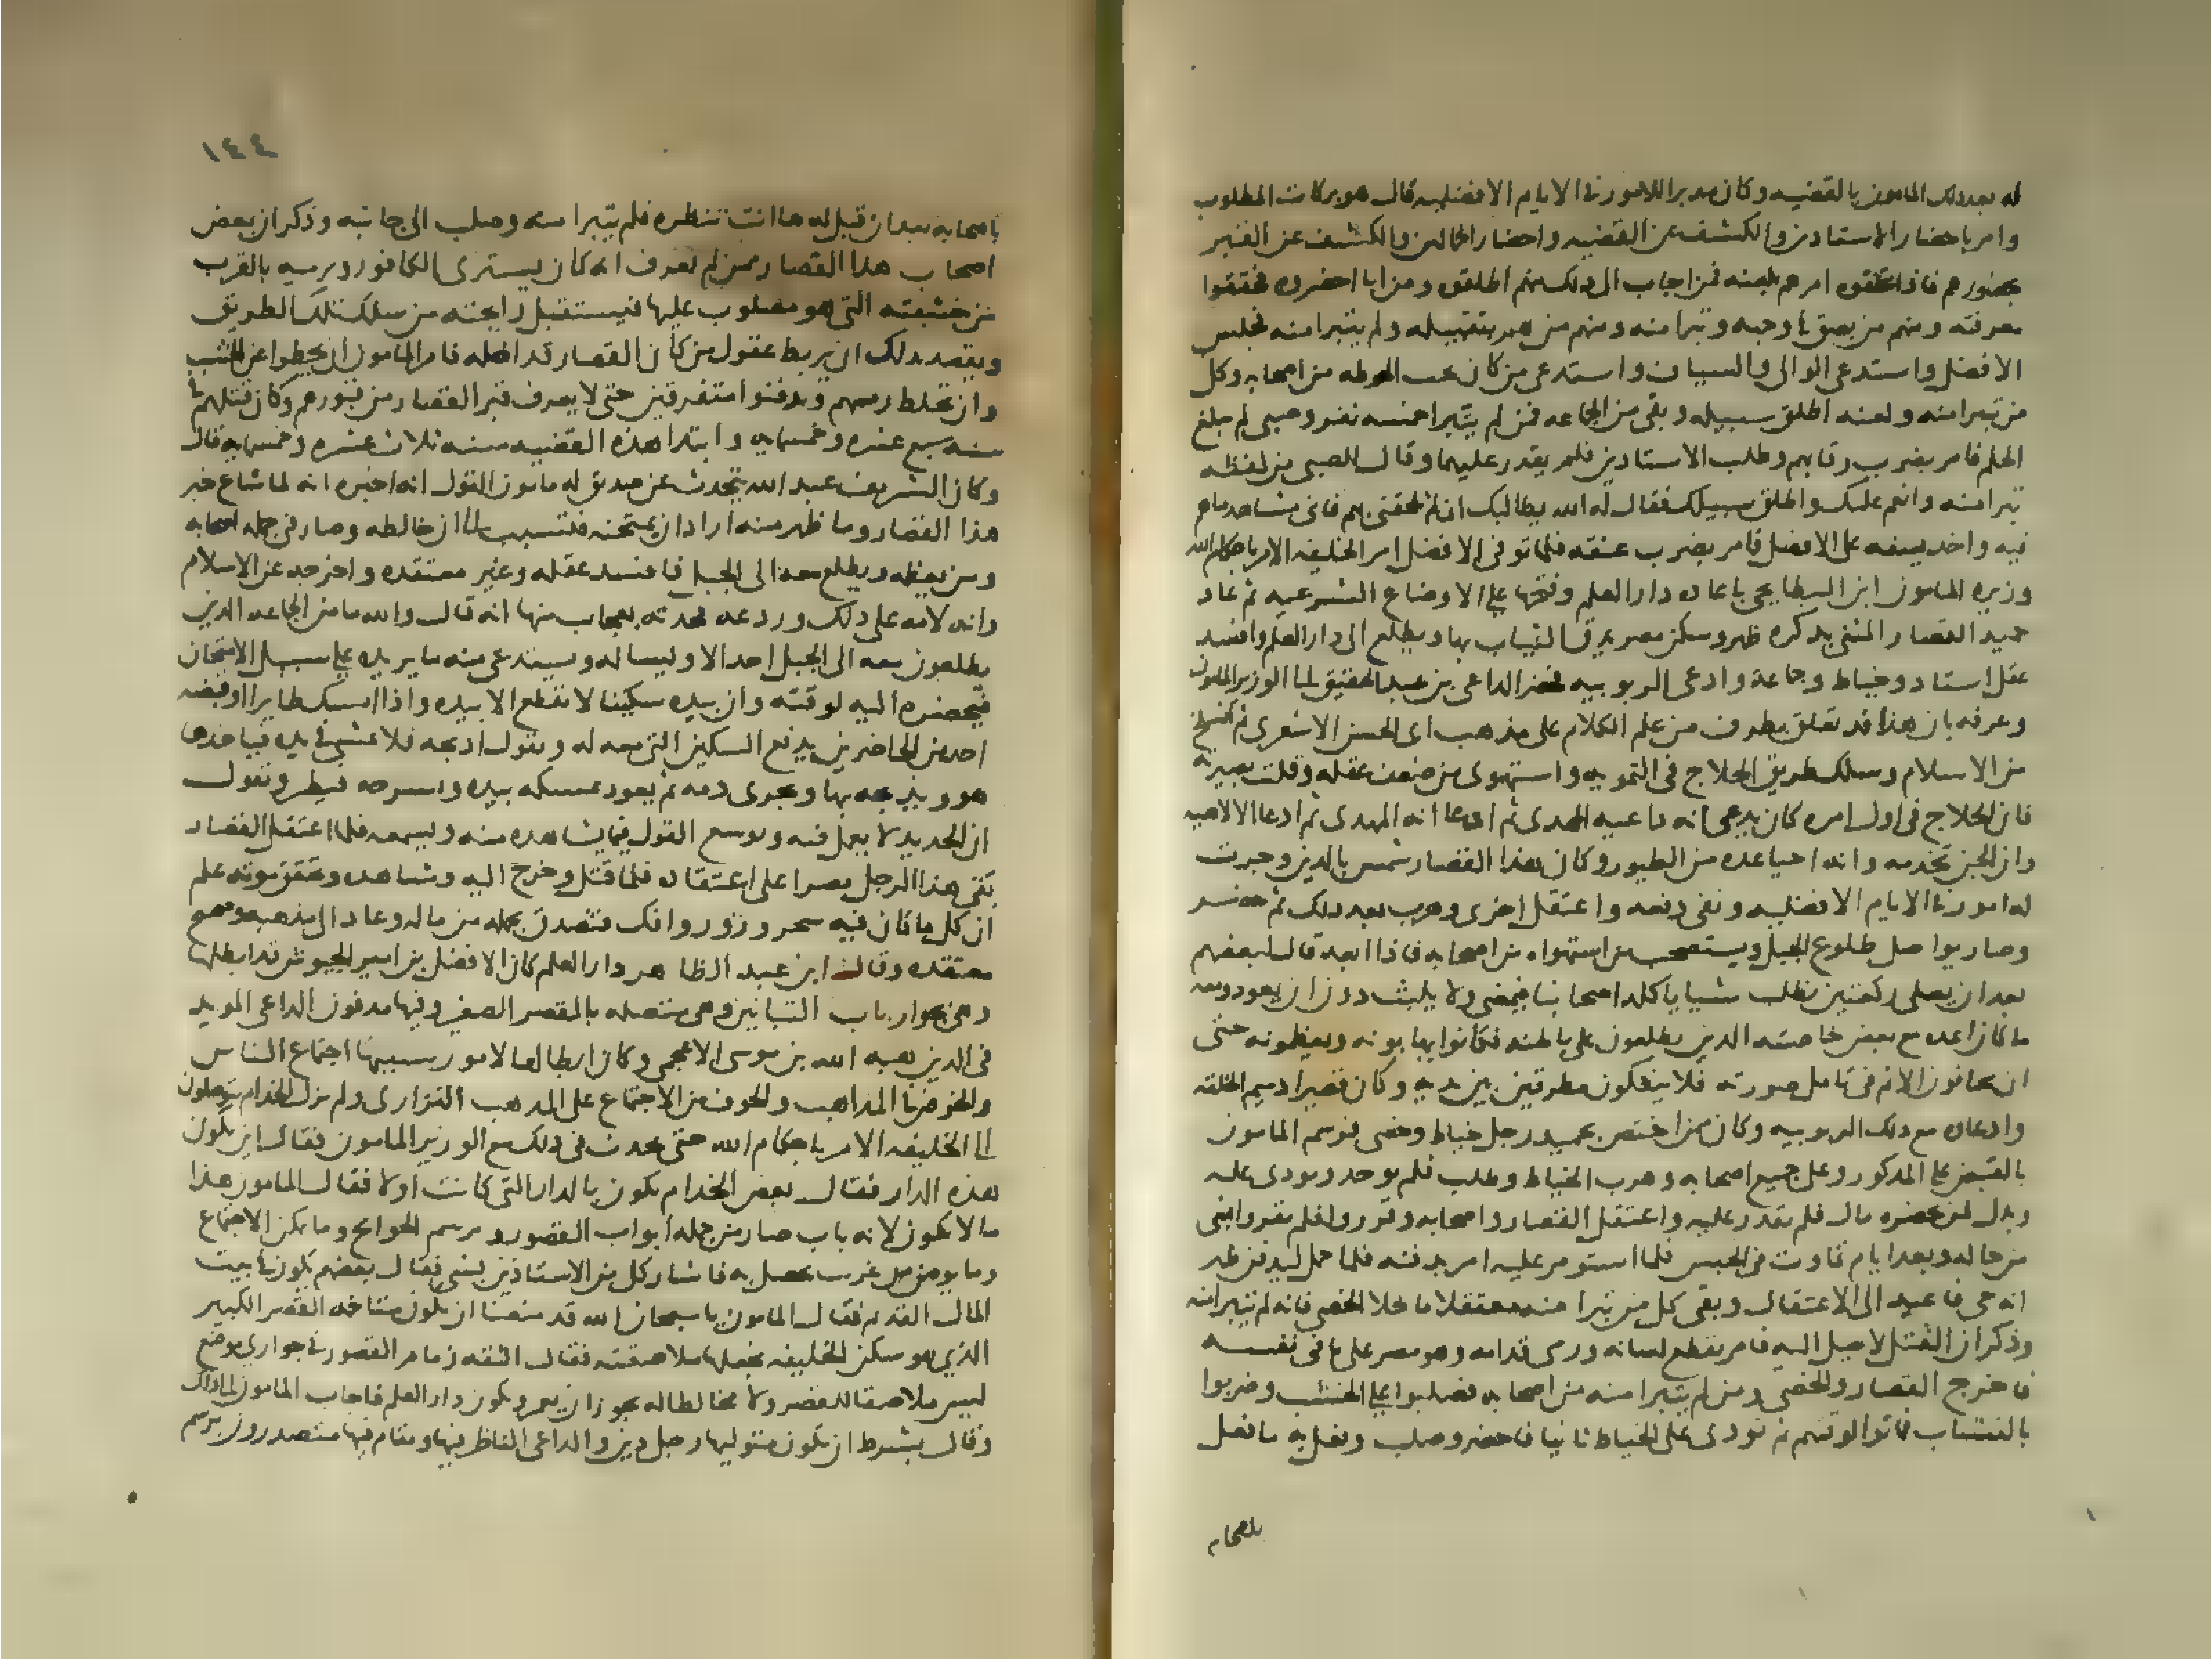 له بعد ذلك المامون بالقضيه وكان مدبرا للامور في الايام الافضليه قال هو بركات المطلوب
وامر باحضار الاستادين والكشف عن القضيه واحضار الحمالين والكشف عن القبر
بحضورهم فاذا تحققوه امرهم بلعنه فمن اجاب الى ذلك منهم اطلقوه ومن ابا احضروه فحققوا
معرفته ومنهم من بصق في وجهه وتبرا منه ومنهم من هم بتقبيله ولم يتبرا منه فجلس
الافضل واستدعى الوالى والسياف واستدعى من كان تحت الحوطه من اصحابه وكل
من تبرا منه ولعنه اطلق سبيله وبقى من الجماعه ممن لم يتبرا خمسه نفر وصبى لم يبلغ
الحلم فامر بضرب رقابهم وطلب الاستادين فلم يقدر عليهما وقال للصبى من لفظه
تبرا منه وانعم عليك واطلق سبيلك فقال له الله يطالبك ان لم تلحقنى بهم فانى مشاهد ما هم
فيه واخد بسيفه على الافضل فامر بضرب عنقه فلما توفى الافضل امر الخليفه الامر باحكام الله
وزيره المامون ابن البطايحى باعاده دار العلم وفتحها على الاوضاع الشرعيه ثم عاد
حميد القصار المثنى بذكره ظهر وسكن مصر يدق الثياب بها ويطلع الى دار العلم وافسد
عقل استاد وخياط وجماعة وادعى الربوبيه فحضر الداعى بن عبد الحقيق الى الوزير المامون
وعرفه بان هذا قد تعلق بطرف من علم الكلام على مذهب ابى الحسن الاشعرى ثم انسلخ
من الاسلام وسلك طريق الحلاج فى التمويه واستهوى من ضعف عقله وقلت بصيرته
فان الحلاج فى اول امره كان يدعى انه داعيه المهدى ثم ادعا انه المهدى ثم ادعا الالاهيه
وان الجن تخدمه وانه احيا عده من الطيور وكان هذا القصار شمس بالدين وجرت
له امور في الايام الافضليه ونفى دفعه واعتقل اخرى وهرب بعد ذلك ثم حضر
وصار يواصل طلوع الجبل ويستصحب من استهواه من اصحابه فاذا ابعد قال لبعضهم
بعد ان يصلى ركعتين نطلب شيا ياكله اصحابنا فيمضى ولا يلبث دون ان يعود ومعه
ما كان اعده مع بعض خاصته الذين يطلعون على باطنه فكانوا يهابونه ويعظمونه حتى
انهم يخافون الاثم فى تامل صورته فلا ينفكون مطرقين بين يديه وكان قصيرا دميم الخلقه
وادعا مع ذلك الربوبيه وكان ممن اختص بحميد رجل خياط وخصى فرسم المامون
بالقبض على المذكور وعلى جميع اصحابه وهرب الخياط وطلب فلم يوجد ونودى عليه
وبذل لمن يحضره مال فلم يقدر عليه واعتقل القصار واصحابه وقرروا فلم يقروا بشى
من حاله وبعد ايام تماوت فى الحبس فلما استومر عليه امر بدفنه فلما حمل ليدفن ظهر
انه حى فاعيد الى الاعتقال وبقى كل من تبرا منه معتقلا ما خلا الخصى فانه لم يتبرا منه
وذكر ان القتل لا يصل اليه فامر بقطع لسانه ورمى قدامه وهو مصر على ما فى نفسه
فاخرج القصار والخصى ومن لم يتبرا منه من اصحابه فصلبوا على الخشب وضربوا
بالنشاب فماتوا لوقتهم ثم نودى على الخياط ثانيا فاحضر وصلب وفعل به ما فعل
باصحابه
١٤٤
باصحابه بعد ان قيل له ها انت تنظره فلم يتبرا منه وصلب الى جانبه وذكر ان بعض
اصحاب هذا القصار ممن لم يعرف انه كان يشترى الكافور ويرميه بالقرب
من خشبته التى هو مصلوب عليها فيستقبل رايحته من سلك تلك الطريق
ويقصد بذلك ان يربط عقول من كان القصار قد اضله فامر المامون ان يحطوا عن الخشب
وان تخلط رممهم ويدفنوا متفرقين حتى لا يعرف قبر القصار من قبورهم وكان قتلهم في
سنه سبع عشره وخمسمايه وابتدا هذه القضيه سنه ثلاث عشره وخمسمايه قال
وكان الشريف عبد الله يتحدث عن صديق له مامون القول انه اخبره انه لما شاع خبر
هذا القصار وما ظهر منه اراد ان يمتحنه فتسبب الى ان خالطه وصار فى جمله اصحابه
ومن يعظمه ويطلع معه الى الجبل فافسد عقله وغير معتقده واخرجه عن الاسلام
وانه لامه على ذلك وردعه فحدثه بعجايب منها انه قال والله ما من الجماعه الذين
يطلعون معه الى الجبل احد الا ويساله ويستدعى منه ما يريده على سبيل الامتحان
فيحضره اليه لوقته وان بيده سكينا لا تقطع الا بيده واذا امسك طايرا وقبضه
احد من الحاضرين يدفع السكين التى معه له ويقول اذبحه فلا تمشى في يده فياخذها
هو ويذبحه بها ويجرى دمه ثم يعود يمسكه بيده ويسرحه فيطير ويقول
ان الحديد لا يعمل فيه ويوسع القول فيما يشاهده منه ويسمعه فلما اعتقل القصار
بقى هذا الرجل مصرا على اعتقاده فلما قتل وخرج اليه وشاهده وتحقق موته علم
ان كل ما كان فيه سحر وزور وافك فتصدق بجمله من ماله وعاد الى مذهبه وصح
معتقده وقال ابن عبد الظاهر دار العلم كان الافضل بن امير الجيوش قد ابطلها
وهى بجوار باب التبانين وهى متصله بالقصر الصغير وفيها مدفون الداعى المويد
فى الدين هبه الله بن موسى الاعجمى وكان ابطالها لامور سببها اجتماع الناس
والخوض في المذاهب والخوف من الاجتماع على المذهب النزارى ولم يزل الخدام يتوصلون
الى الخليفه الامر باحكام الله حتى تحدث فى ذلك مع الوزير المامون فقال اين تكون
هذه الدار فقال بعض الخدام تكون بالدار التى كانت اولا فقال المامون هذا
ما لا يكون لانه باب صار من جمله ابواب القصور وبرسم الحوايج وما يمكن الاجتماع
ولا يومن من غريب يحصل به فاشار كل من الاستاذين بشى فقال بعضهم تكون في بيت
المال القديم فقال المامون يا سبحان الله قد منعنا ان تكون متاخمه القصر الكبير
الذي هو سكن الخليفه نجعلها ملاصقته فقال الثقه زمام القصور في جوارى موضع
ليس ملاصقا للقصر ولا مخالطا له يجوز ان يعمر ويكون دار العلم فاجاب المامون الى ذلك
وقال بشرط ان يكون متوليها رجل دين والداعى الناظر فيها ويقام فيها متصدرون برسم